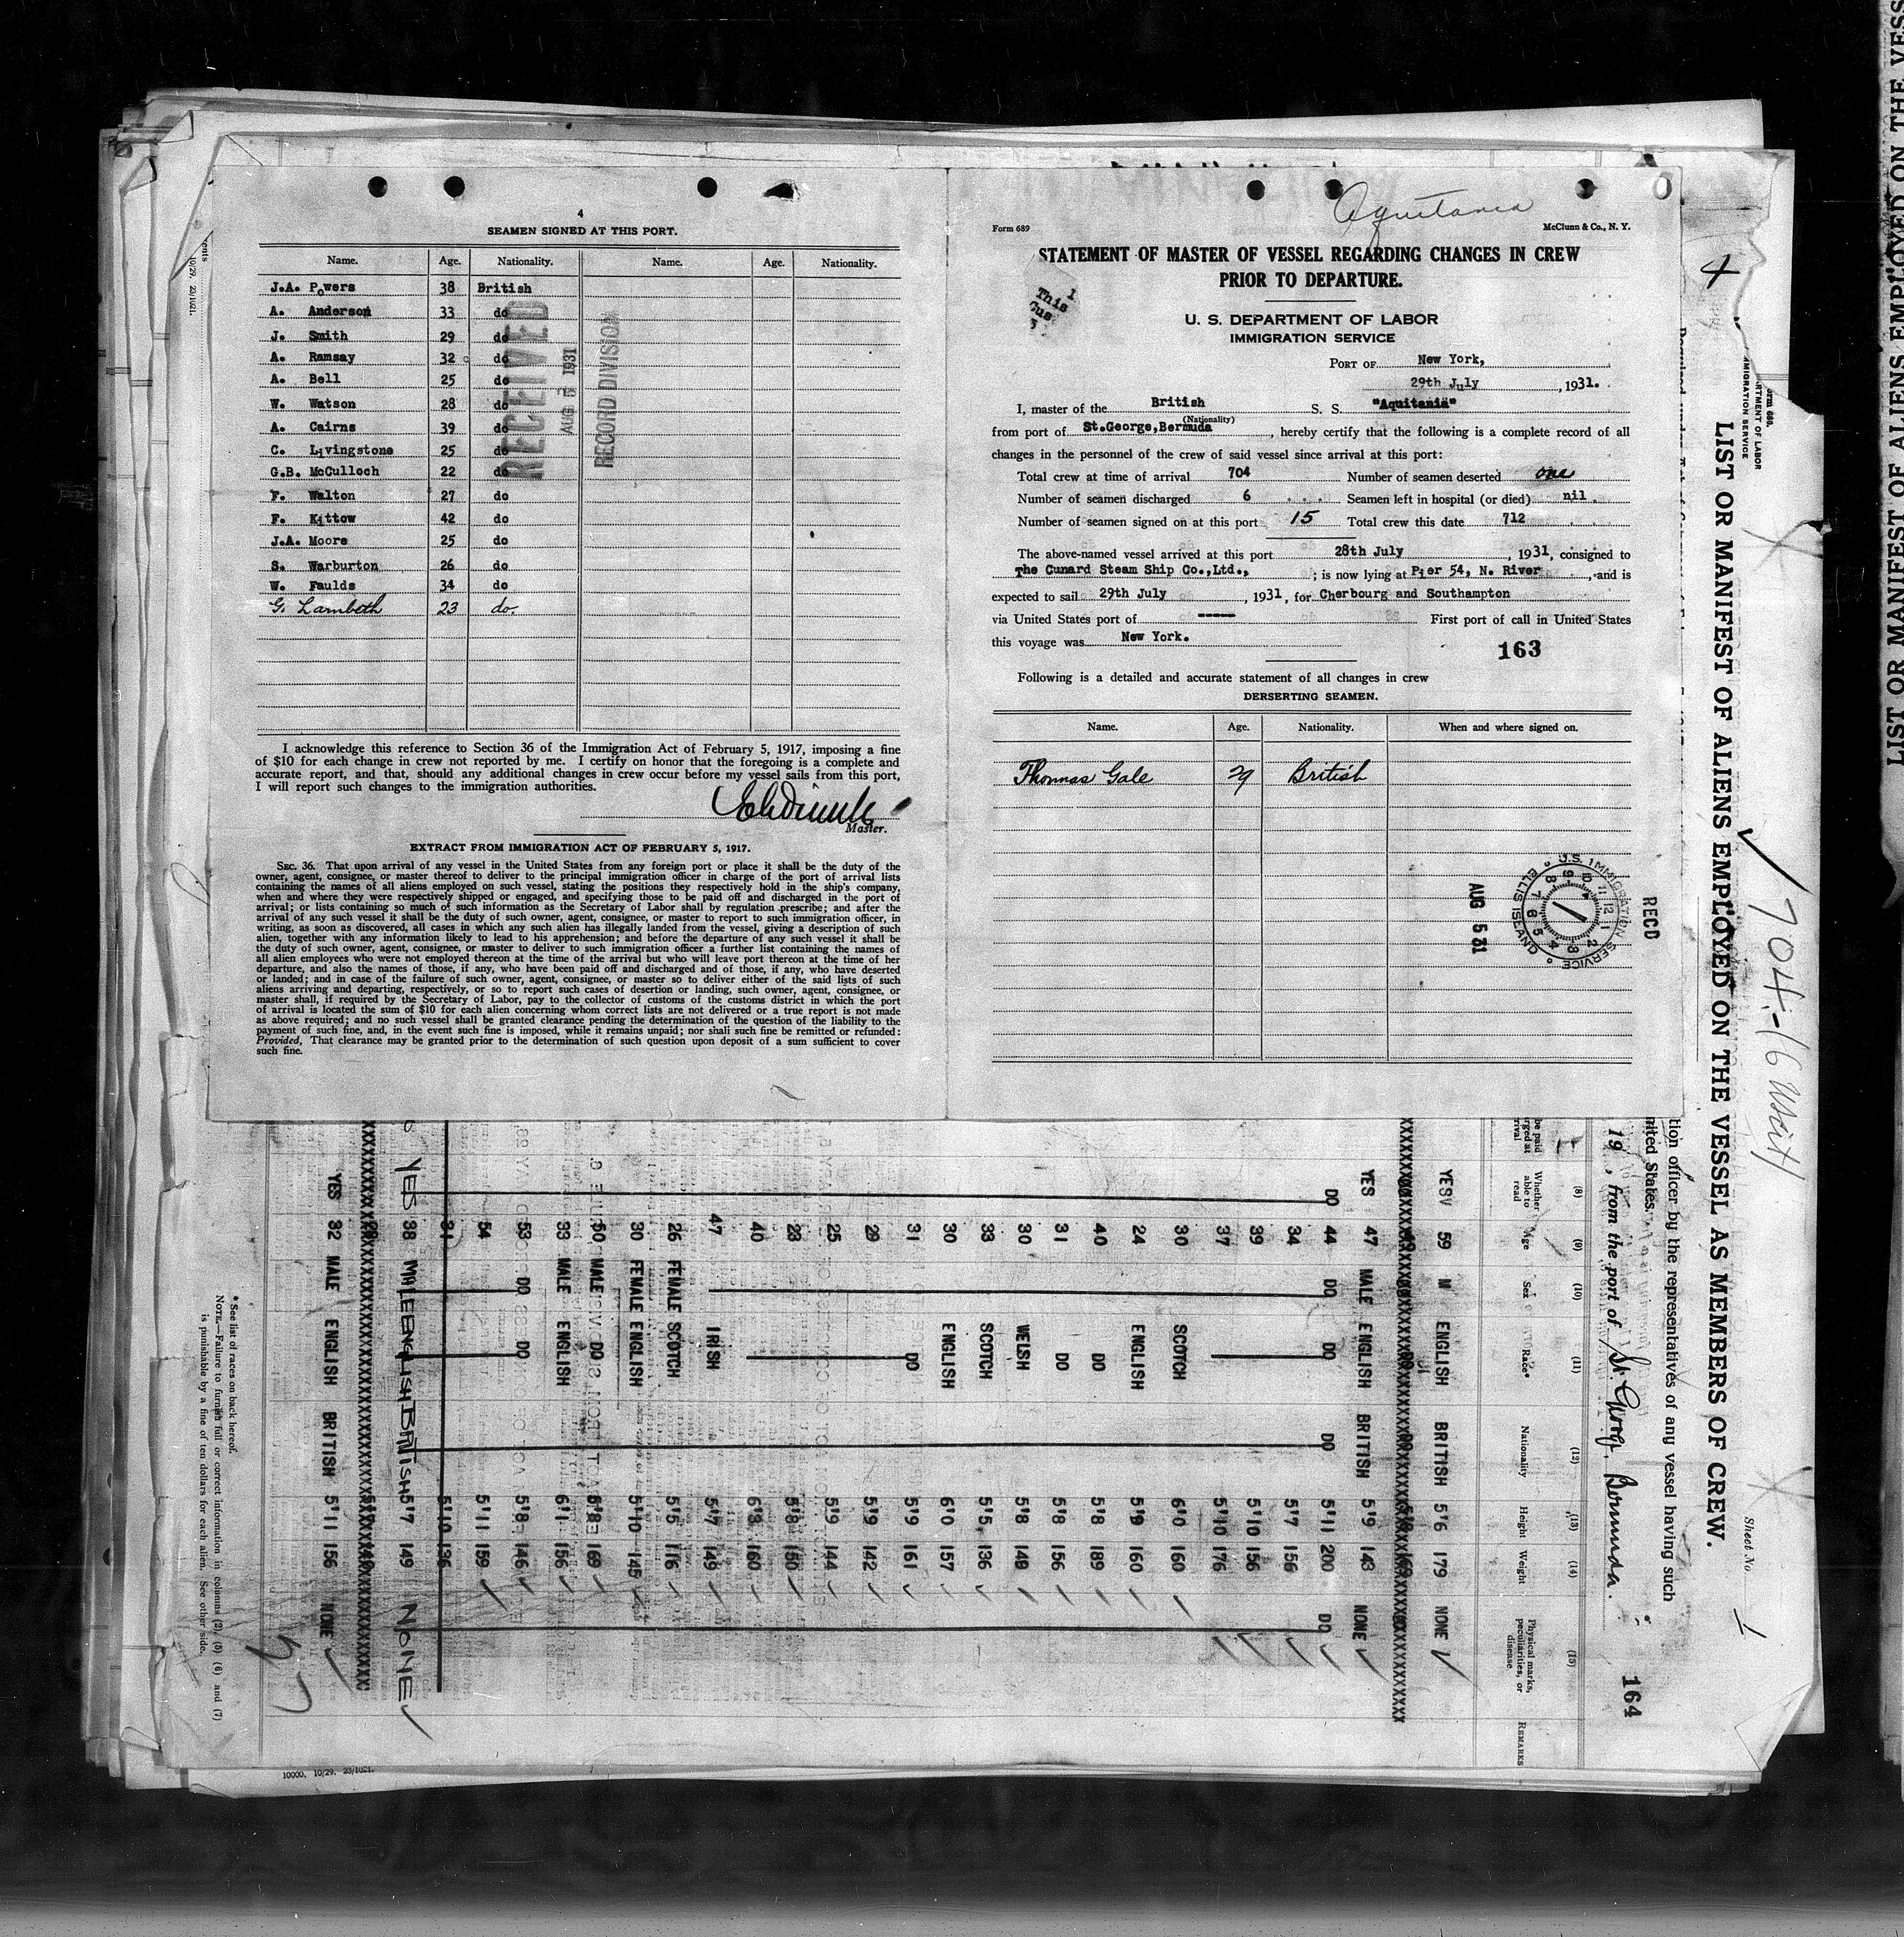 4
SEAMEN SIGNED AT THIS PORT.
Name. Age. Nationality. Name. Age. Nationality.
J.A. Powers 38 British
A. Anderson 33 do
J. Smith 29 do
A. Ramsay 32 do
A. Bell 25 do
W. Watson 28 do
A. Cairns 39 do
C. Livingstone 25 do
G.B. McCulloch 22 do
F. Walton 27 do
F. Kittow 42 do
J.A. Moore 25 do
S. Warburton 26 do
W. Faulds 34 do
G. Lambeth 23 do.
RECEIVED
AUG 5 1931
RECORD DIVISION
I acknowledge this reference to Section 36 of the Immigration Act of February 5, 1917, imposing a fine
of $10 for each change in crew not reported by me. I certify on honor that the foregoing is a complete and
accurate report, and that, should any additional changes in crew occur before my vessel sails from this port,
I will report such changes to the immigration authorities.
Master.
EXTRACT FROM IMMIGRATION ACT OF FEBRUARY 5, 1917.
SEC. 36. That upon arrival of any vessel in the United States from any foreign port or place it shall be the duty of the
owner, agent, consignee, or master thereof to deliver to the principal immigration officer in charge of the port of arrival lists
containing the names of all aliens employed on such vessel, stating the positions they respectively hold in the ship's company,
when and where they were respectively shipped or engaged, and specifying those to be paid off and discharged in the port of
arrival; or lists containing so much of such information as the Secretary of Labor shall by regulation prescribe; and after the
arrival of any such vessel it shall be the duty of such owner, agent, consignee, or master to report to such immigration officer, in
writing, as soon as discovered, all cases in which any such alien has illegally landed from the vessel, giving a description of such
alien, together with any information likely to lead to his apprehension; and before the departure of any such vessel it shall be
the duty of such owner, agent, consignee, or master to deliver to such immigration officer a further list containing the names of
all alien employees who were not employed thereon at the time of the arrival but who will leave port thereon at the time of her
departure, and also the names of those, if any, who have been paid off and discharged and of those, if any, who have deserted
or landed; and in case of the failure of such owner, agent, consignee, or master so to deliver either of the said lists of such
aliens arriving and departing, respectively, or so to report such cases of desertion or landing, such owner, agent, consignee, or
master shall, if required by the Secretary of Labor, pay to the collector of customs of the customs district in which the port
of arrival is located the sum of $10 for each alien concerning whom correct lists are not delivered or a true report is not made
as above required; and no such vessel shall be granted clearance pending the determination of the question of the liability to the
payment of such fine, and, in the event such fine is imposed, while it remains unpaid; nor shall such fine be remitted or refunded:
Provided, That clearance may be granted prior to the determination of such question upon deposit of a sum sufficient to cover
such fine.
Aquitania
Form 689 McClunn & Co., N. Y.
STATEMENT OF MASTER OF VESSEL REGARDING CHANGES IN CREW
PRIOR TO DEPARTURE.
U. S. DEPARTMENT OF LABOR
IMMIGRATION SERVICE
PORT OF New York,
29th July, 1931.
I, master of the British S. S. "Aquitania"
(Nationality)
from port of St.George,Bermuda, hereby certify that the following is a complete record of all
changes in the personnel of the crew of said vessel since arrival at this port:
Total crew at time of arrival 704 Number of seamen deserted one
Number of seamen discharged 6 Seamen left in hospital (or died) nil
Number of seamen signed on at this port 15 Total crew this date 712
The above-named vessel arrived at this port 28th July, 1931, consigned to
The Cunard Steam Ship Co.,Ltd., ; is now lying at Pier 54, N. River, and is
expected to sail 29th July, 1931, for Cherbourg and Southampton
via United States port of ----- First port of call in United States
this voyage was New York.
163
Following is a detailed and accurate statement of all changes in crew
DERSERTING SEAMEN.
Name. Age. Nationality. When and where signed on.
Thomas Gale 29 British
U.S. IMMIGRATION SERVICE
ELLIS ISLAND
RECD
AUG 5 31
LIST OR MANIFEST OF ALIENS EMPLOYED ON THE VESSEL AS MEMBERS OF CREW.
LIST OR MANIFEST OF ALIENS EMPLOYED ON THE VESS
Sheet No. 1
tion officer by the representatives of any vessel having such
nited States.
19 , from the port of St. George, Bermuda.
164
(8) (9) (10) (11) (12) (13) (14) (15)
Whether able to read Age Sex Race* Nationality Height Weight Physical marks, peculiarities, or disease REMARKS
YES 59 M ENGLISH BRITISH 5'6 179 NONE
YES 47 MALE ENGLISH BRITISH 5'9 143 NONE
DO 44 DO DO DO 5'11 200 DO
34 5'7 156
39 5'10 156
37 5'10 176
30 SCOTCH 6'0 160
24 ENGLISH 5'9 160
40 DO 5'8 189
31 DO 5'8 156
30 WELSH 5'8 148
33 SCOTCH 5'5 136
30 ENGLISH 6'0 157
31 DO 5'9 161
29 5'9 142
25 5'9 144
23 5'8 150
40 6'3 160
47 IRISH 5'7 149
26 FEMALE SCOTCH 5'5 116
30 FEMALE ENGLISH 5'10 145
50 MALE DO 5'8 169
33 MALE ENGLISH 6'1 156
53 DO DO 5'8 146
54 5'11 159
31 5'10 136
YES 38 MALE ENGLISH BRITISH 5'7 149 NONE
YES 32 MALE ENGLISH BRITISH 5'11 156 NONE
* See list of races on back hereof.
NOTE.—Failure to furnish full or correct information in columns (2), (5) (6) and (7)
is punishable by a fine of ten dollars for each alien. See other side.
10000. 10/29. 23/1021.